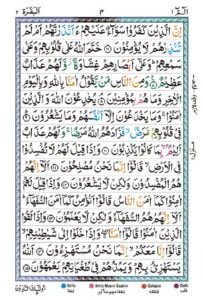 البقرة ٢
٣
الٓمّٓ ١
اِنَّ الَّذِيْنَ كَفَرُوْا سَوَآءٌ عَلَيْهِمْ ءَاَنْذَرْتَهُمْ اَمْ لَمْ
تُنْذِرْهُمْ لَا يُؤْمِنُوْنَ خَتَمَ اللّٰهُ عَلٰى قُلُوْبِهِمْ وَعَلٰى
سَمْعِهِمْ وَعَلٰٓى اَبْصَارِهِمْ غِشَاوَةٌ وَّلَهُمْ عَذَابٌ
عَظِيْمٌ وَمِنَ النَّاسِ مَنْ يَّقُوْلُ اٰمَنَّا بِاللّٰهِ وَبِالْيَوْمِ
الْاٰخِرِ وَمَا هُمْ بِمُؤْمِنِيْنَ يُخٰدِعُوْنَ اللّٰهَ وَالَّذِيْنَ
اٰمَنُوْا وَمَا يَخْدَعُوْنَ اِلَّآ اَنْفُسَهُمْ وَمَا يَشْعُرُوْنَ فِيْ
قُلُوْبِهِمْ مَّرَضٌ فَزَادَهُمُ اللّٰهُ مَرَضًا وَلَهُمْ عَذَابٌ
اَلِيْمٌۢ بِمَا كَانُوْا يَكْذِبُوْنَ وَاِذَا قِيْلَ لَهُمْ لَا تُفْسِدُوْا
فِى الْاَرْضِ قَالُوْٓا اِنَّمَا نَحْنُ مُصْلِحُوْنَ اَلَآ اِنَّهُمْ
هُمُ الْمُفْسِدُوْنَ وَلٰكِنْ لَّا يَشْعُرُوْنَ وَاِذَا قِيْلَ لَهُمْ
اٰمِنُوْا كَمَآ اٰمَنَ النَّاسُ قَالُوْٓا اَنُؤْمِنُ كَمَآ اٰمَنَ
السُّفَهَآءُ اَلَآ اِنَّهُمْ هُمُ السُّفَهَآءُ وَلٰكِنْ لَّا يَعْلَمُوْنَ
وَاِذَا لَقُوا الَّذِيْنَ اٰمَنُوْا قَالُوْٓا اٰمَنَّا وَاِذَا خَلَوْا اِلٰى شَيٰطِيْنِهِمْ
قَالُوْٓا اِنَّا مَعَكُمْ اِنَّمَا نَحْنُ مُسْتَهْزِءُوْنَ اَللّٰهُ
يَسْتَهْزِئُ بِهِمْ وَيَمُدُّهُمْ فِيْ طُغْيَانِهِمْ يَعْمَهُوْنَ